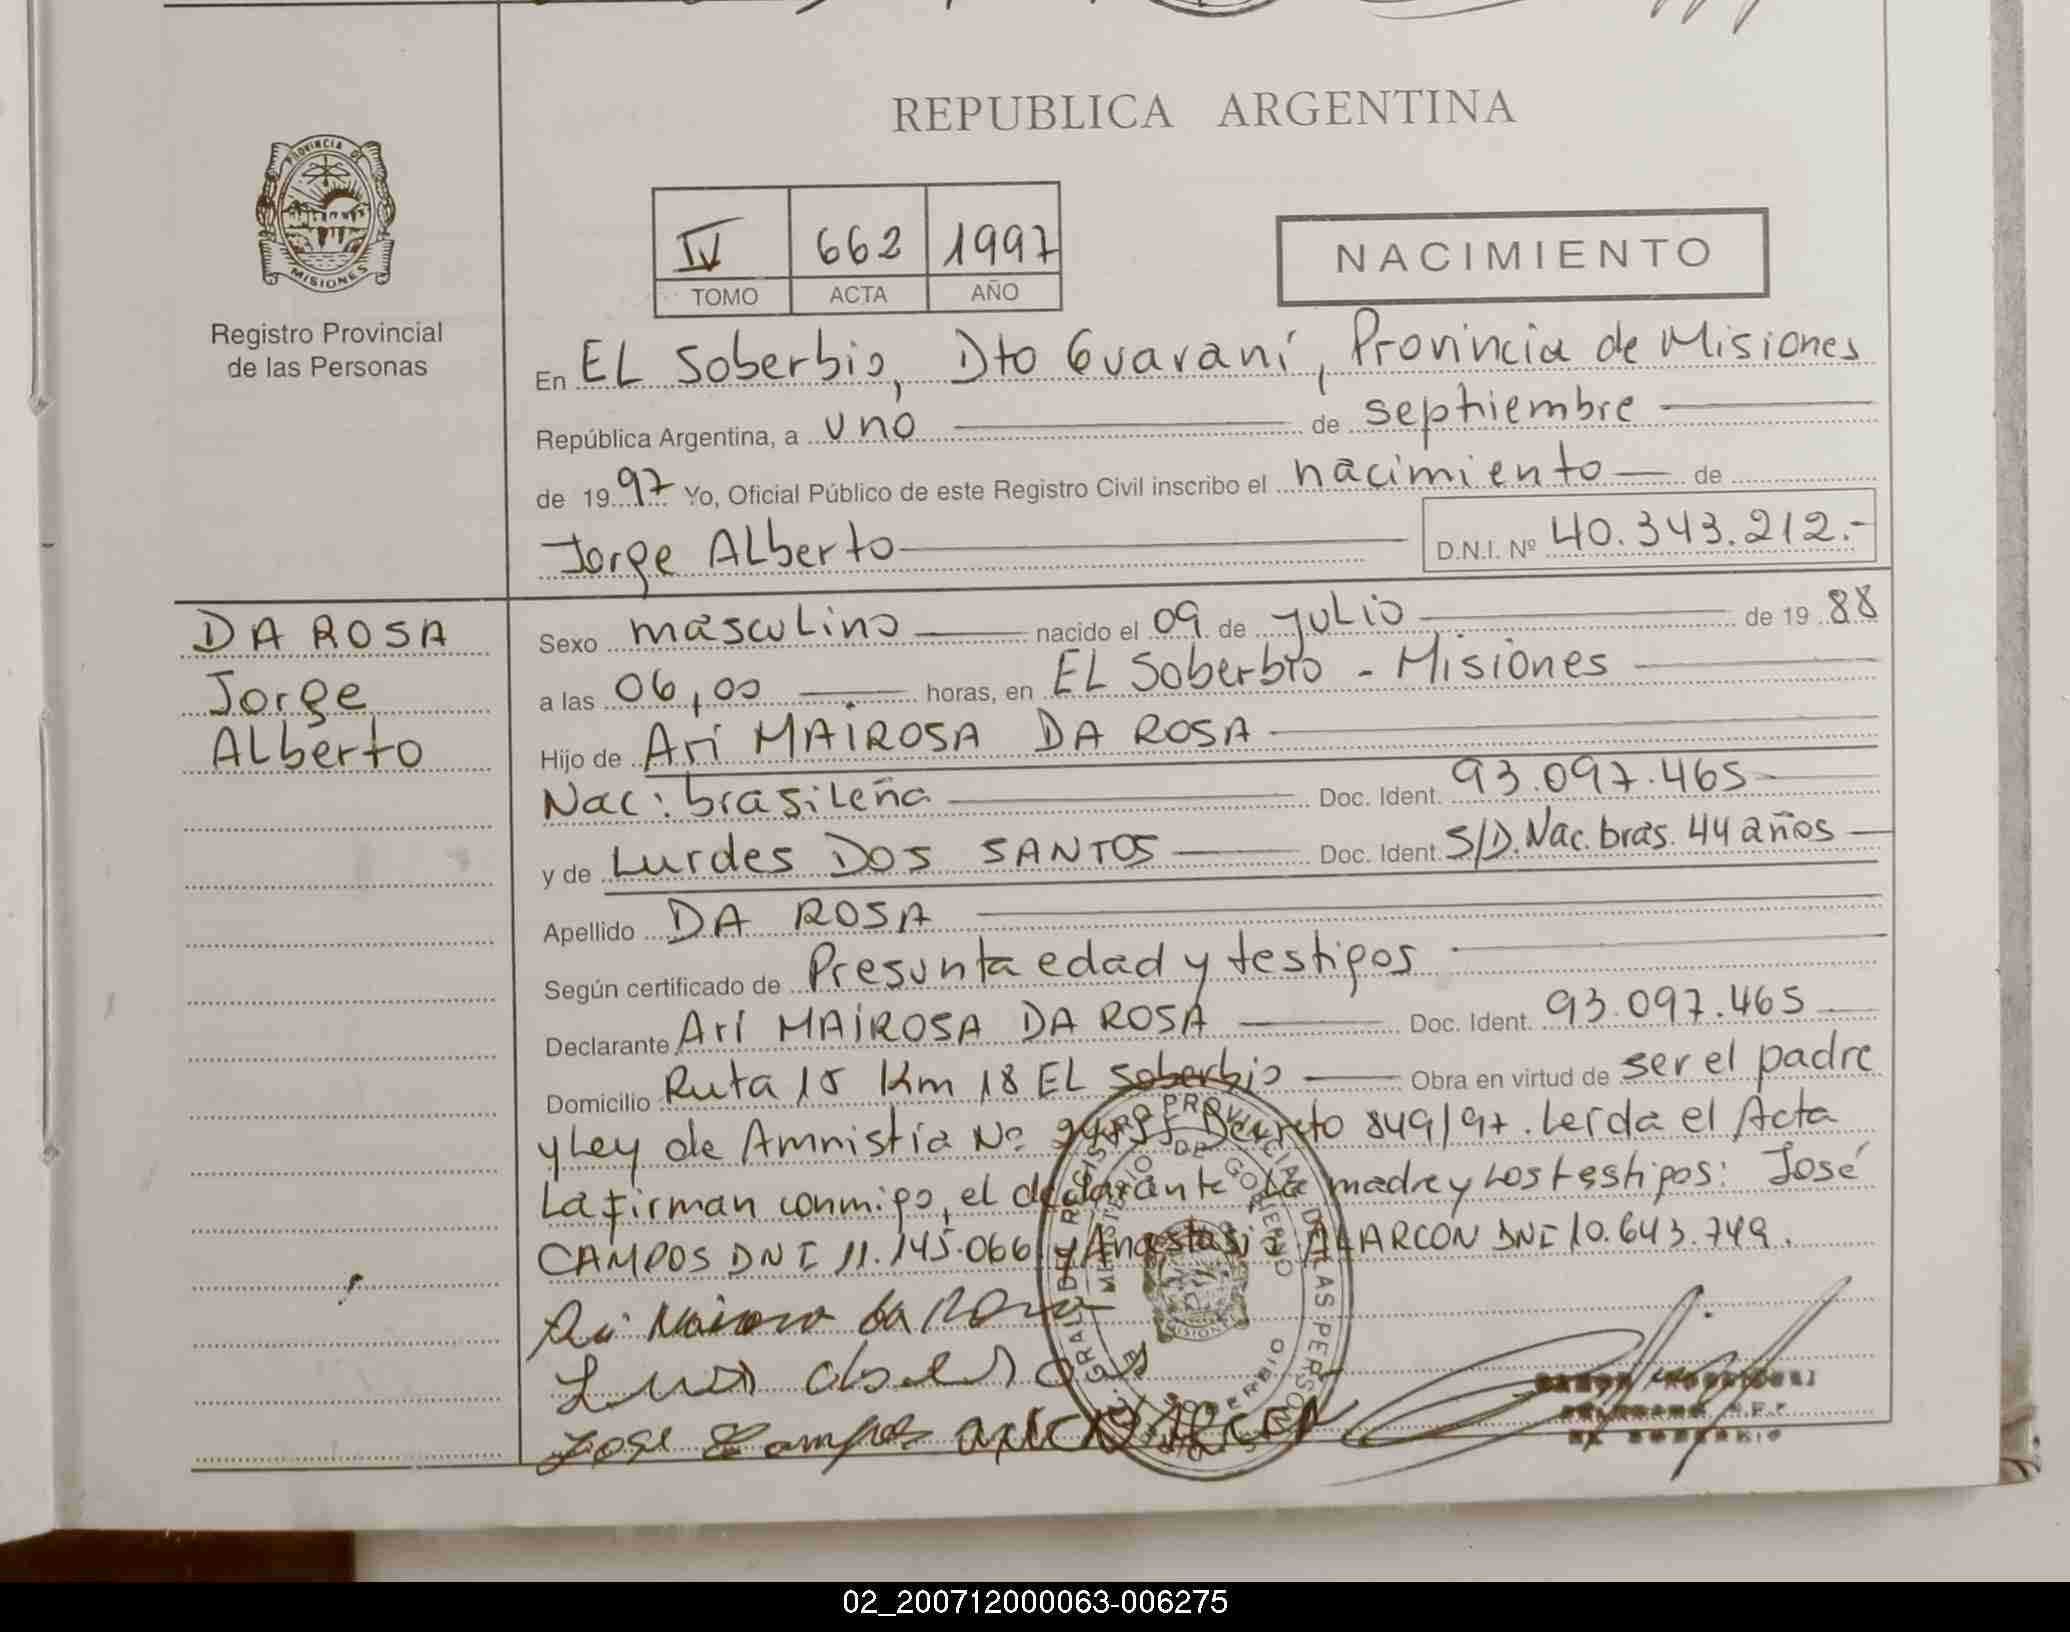 REPUBLICA ARGENTINA
PROVINCIA DE
MISIONES
Registro Provincial
de las Personas
IV 662 1997
TOMO ACTA AÑO
NACIMIENTO
En EL Soberbio, Dto Guaraní, Provincia de Misiones
República Argentina, a uno de septiembre
de 1997 Yo, Oficial Público de este Registro Civil inscribo el nacimiento de
Jorge Alberto D.N.I. Nº 40.343.212.-
DA ROSA
Jorge
Alberto
Sexo masculino nacido el 09 de julio de 1988
a las 06,00 horas, en EL Soberbio - Misiones
Hijo de Arí MAIROSA DA ROSA
Nac: brasileña Doc. Ident. 93.097.465
y de Lurdes DOS SANTOS Doc. Ident. S/D. Nac. bras. 44 años
Apellido DA ROSA
Según certificado de Presunta edad y testigos
Declarante Arí MAIROSA DA ROSA Doc. Ident. 93.097.465
Domicilio Ruta 15 Km 18 EL Soberbio Obra en virtud de ser el padre
y Ley de Amnistía Nº Decreto 849/97. Leída el Acta
La firman conmigo, el declarante La madre y los testigos: José
CAMPOS DNI 11.145.066 y Anastasia ALARCON DNI 10.643.749.
da Rosa
Jose Campos
REGISTRO PROVINCIAL DE LAS PERSONAS
MINISTERIO DE GOBIERNO
MISIONES
SOBERBIO
02_200712000063-006275